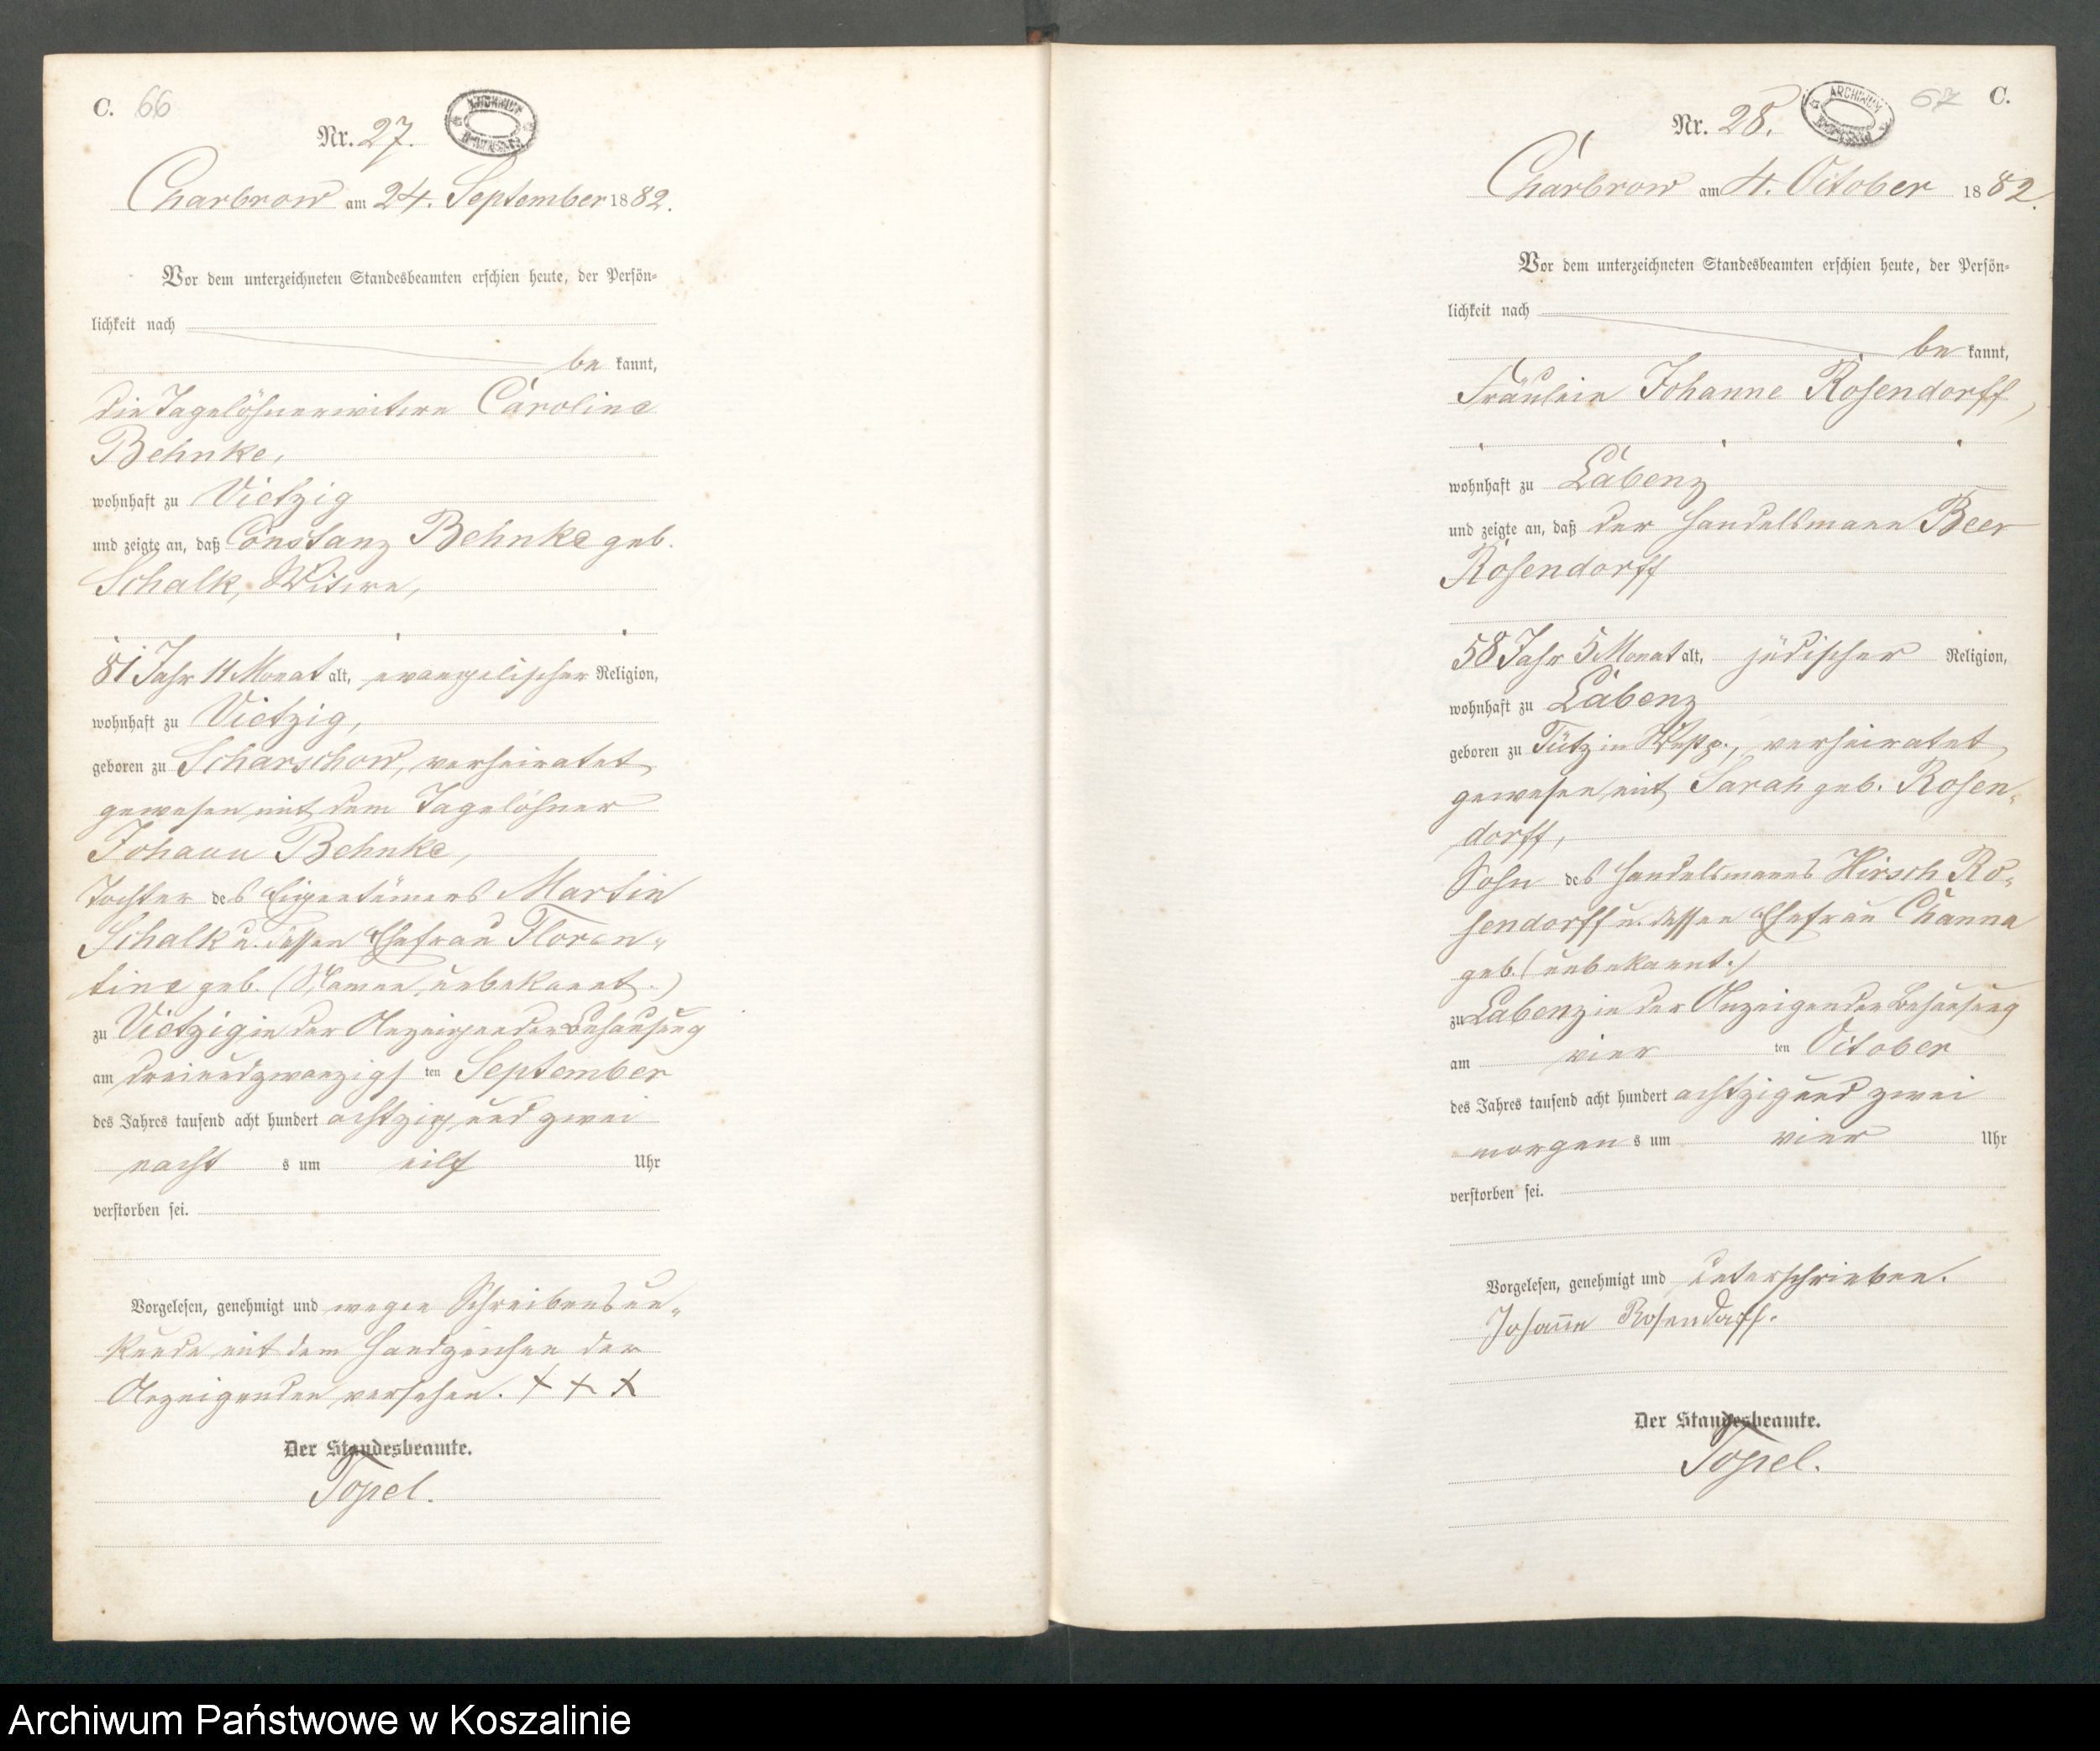 C. 66
Nr. 27.
ARCHIWUM
Charbrow am 24. September 1882.
Vor dem unterzeichneten Standesbeamten erschien heute, der Persön-
lichkeit nach
be kannt,
die Tagelöhnerwitwe Caroline
Behnke,
wohnhaft zu Vietzig
und zeigte an, daß Constanz Behnke geb.
Schalk, Witwe,
81 Jahr 11 Monat alt, evangelischer Religion,
wohnhaft zu Vietzig,
geboren zu Scharschow, verheiratet
gewesen mit dem Tagelöhner
Johann Behnke,
Tochter des Eigentümers Martin
Schalk u. dessen Ehefrau Floren-
tine geb. (Namen unbekannt.)
zu Vietzig in der Anzeigenden Behausung
am dreiundzwanzigs ten September
des Jahres tausend acht hundert achtzig und zwei
nacht s um eilf Uhr
verstorben sei.
Vorgelesen, genehmigt und wegen Schreibensun-
kunde mit dem Handzeichen der
Anzeigenden versehen. + + +
Der Standesbeamte.
Topel.
67 C.
Nr. 28.
ARCHIWUM
Charbrow am 4. October 1882.
Vor dem unterzeichneten Standesbeamten erschien heute, der Persön-
lichkeit nach
be kannt,
Fräulein Johanne Rosendorff,
wohnhaft zu Labenz
und zeigte an, daß der Handelsmann Beer
Rosendorff
58 Jahr 5 Monat alt, jüdischer Religion,
wohnhaft zu Labenz
geboren zu Tütz in Wstpr., verheiratet
gewesen mit Sarah geb. Rosen-
dorff,
Sohn des Handelsmanns Hirsch Ro-
sendorff u. dessen Ehefrau Channe
geb. (unbekannt.)
zu Labenz in der Anzeigenden Behausung
am vier ten October
des Jahres tausend acht hundert achtzig und zwei
morgen s um vier Uhr
verstorben sei.
Vorgelesen, genehmigt und unterschrieben.
Johanne Rosendorff.
Der Standesbeamte.
Topel.
Archiwum Państwowe w Koszalinie